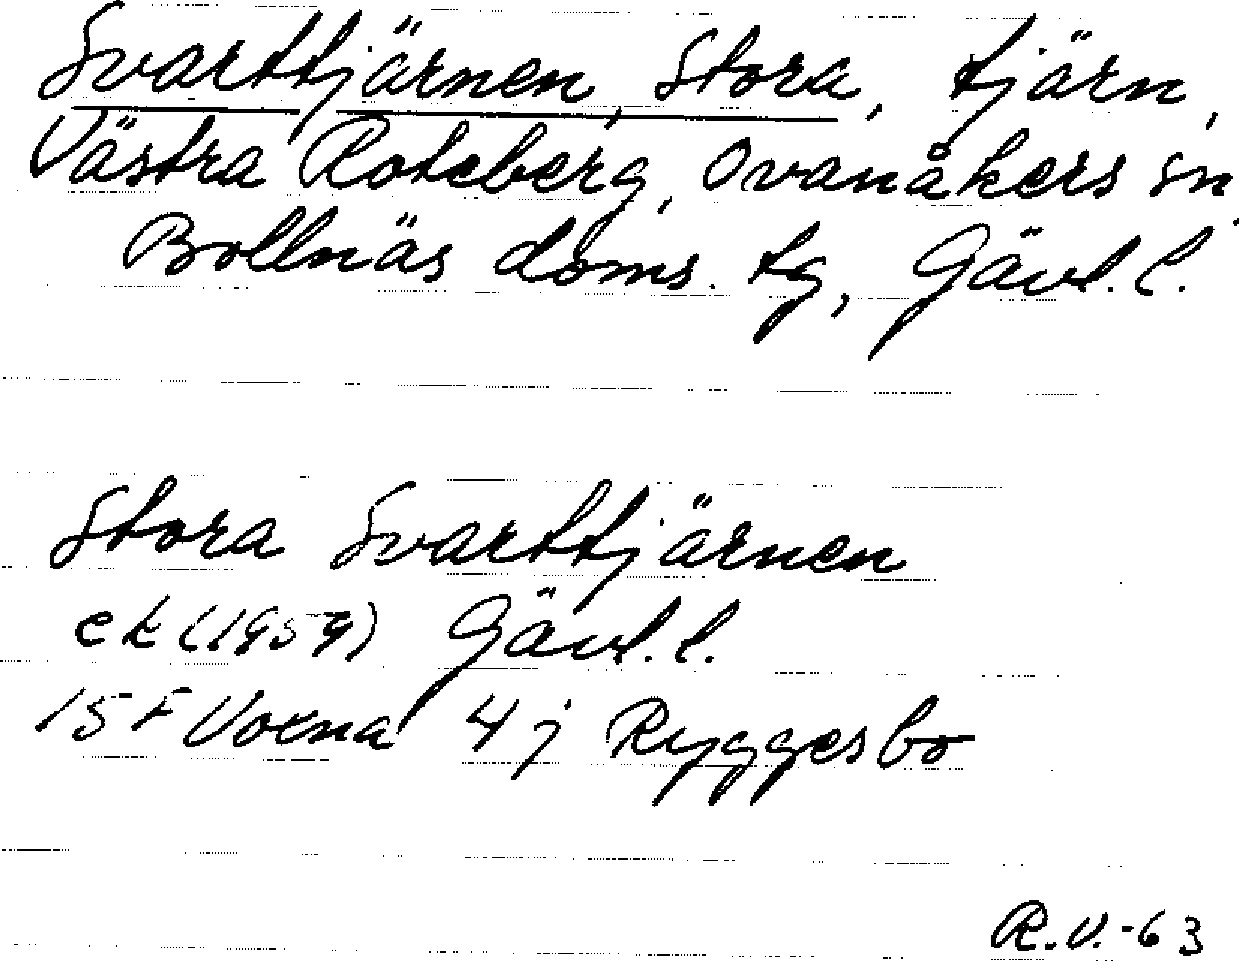 Svarttjärnen, Stora, tjärn,
Västra Roteberg, Ovanåkers sn.
Bollnäs doms. tg, Gävl. l.
Stora Svarttjärnen
ek (1959) Gävl. l.
15 F Voxna 4 j Ryggesbo
R.V.-63